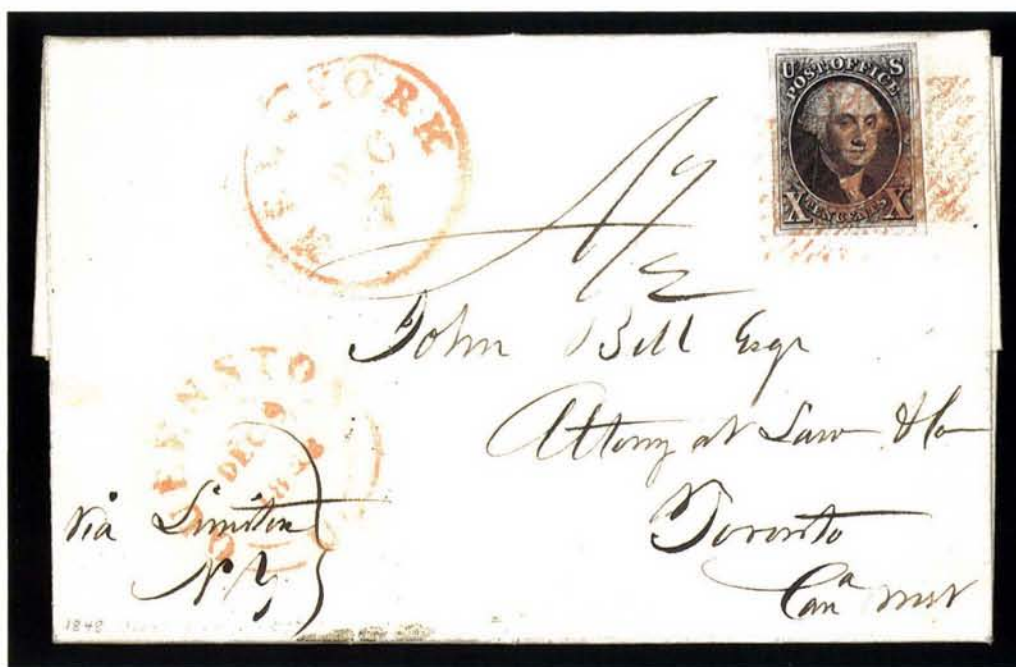 NEW YORK
4
U S
POST OFFICE
X TEN CENTS X
John Bell Esqr
Attorny at Law &c
Toronto
Cana West
QUEENSTO
DEC 9
via
N.Y.
1848